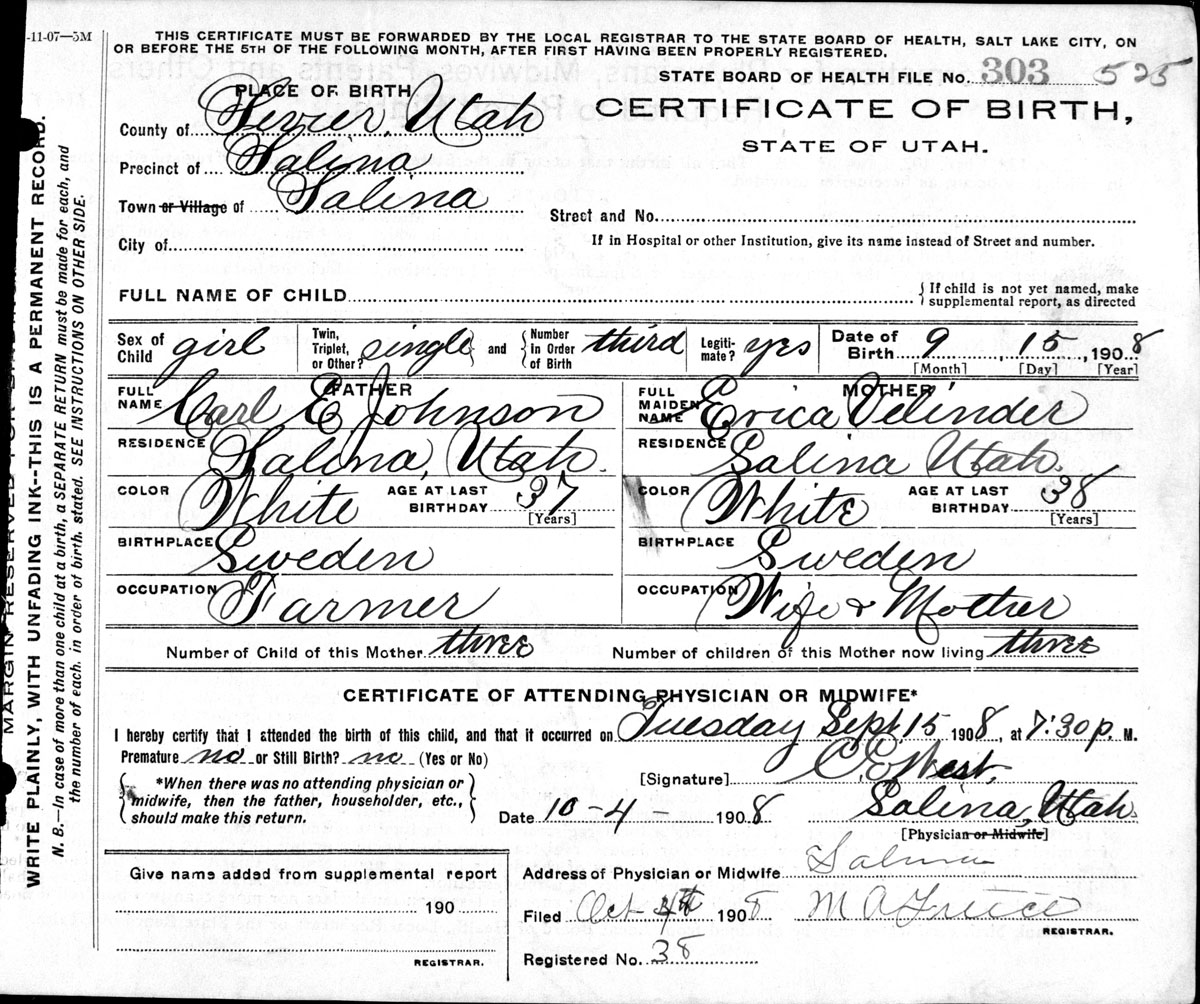 -11-07—5M
THIS CERTIFICATE MUST BE FORWARDED BY THE LOCAL REGISTRAR TO THE STATE BOARD OF HEALTH, SALT LAKE CITY, ON
OR BEFORE THE 5TH OF THE FOLLOWING MONTH, AFTER FIRST HAVING BEEN PROPERLY REGISTERED.
STATE BOARD OF HEALTH FILE No. 303 525
PLACE OF BIRTH
CERTIFICATE OF BIRTH,
STATE OF UTAH.
County of Sevier, Utah
Precinct of Salina
Town or Village of Salina
Street and No.
City of
If in Hospital or other Institution, give its name instead of Street and number.
FULL NAME OF CHILD
If child is not yet named, make
supplemental report, as directed
Sex of Child girl
Twin, Triplet, or Other? single and
Number In Order of Birth third
Legiti-mate? yes
Date of Birth 9, 15, 1908
[Month] [Day] [Year]
FATHER
FULL NAME Carl E Johnson
RESIDENCE Salina, Utah.
COLOR White AGE AT LAST BIRTHDAY 37
[Years]
BIRTHPLACE Sweden
OCCUPATION Farmer
MOTHER
FULL MAIDEN NAME Erica A Velinder
RESIDENCE Salina Utah.
COLOR White AGE AT LAST BIRTHDAY 38
[Years]
BIRTHPLACE Sweden
OCCUPATION Wife & Mother
Number of Child of this Mother three
Number of children of this Mother now living three
CERTIFICATE OF ATTENDING PHYSICIAN OR MIDWIFE*
I hereby certify that I attended the birth of this child, and that it occurred on Tuesday Sept. 15 1908, at 7:30 p. M.
Premature no or Still Birth? no (Yes or No)
*When there was no attending physician or
midwife, then the father, householder, etc.,
should make this return.
[Signature] C.E. West.
Date 10-4- 1908 Salina, Utah.
[Physician or Midwife]
Address of Physician or Midwife Salina
Filed Oct 4th 1908 M A
REGISTRAR.
Registered No. 38
Give name added from supplemental report
190
REGISTRAR.
MARGIN RESERVED FOR
WRITE PLAINLY, WITH UNFADING INK--THIS IS A PERMANENT RECORD.
N. B.—In case of more than one child at a birth, a SEPARATE RETURN must be made for each, and
the number of each, in order of birth, stated. SEE INSTRUCTIONS ON OTHER SIDE.